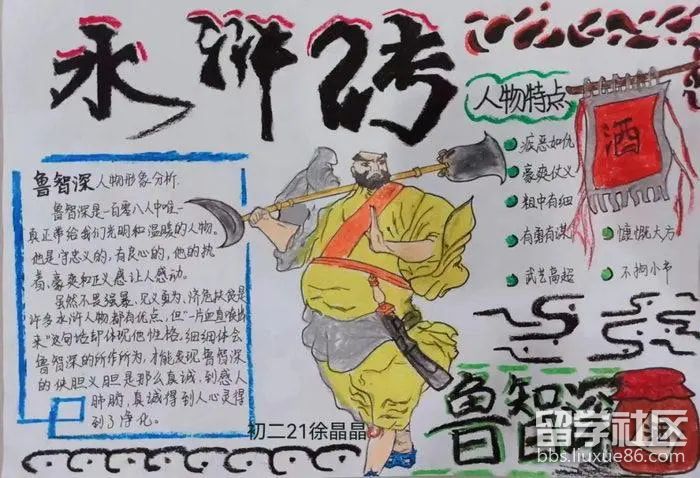 水浒传
人物特点
酒
疾恶如仇
豪爽仗义
粗中有细
有勇有谋
慷慨大方
武艺高超
不拘小节
鲁智深人物形象分析.
鲁智深是一百零八人中唯一
真正带给我们光明和温暖的人物。
他是守忠义的,有良心的,他的执
着,豪爽和正义感让人感动。
虽然不畏强暴、见义勇为、济危扶贫是
许多水浒人物都有优点,但"一片血真喷出
来"这句话却体现他性格,细细体会
鲁智深的所作所为,才能发现鲁智深
的侠胆义胆是那么真诚,到感人
肺腑,真诚得到人心灵得
到了净化。
初二21徐晶晶
鲁智深
留学社区
bbs.liuxue86.com